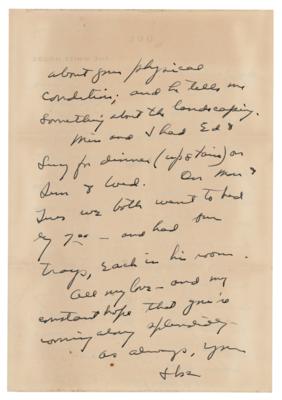 about your physical
condition; and he tells me
something about the landscaping.
Min and I had Ed &
Lucy for dinner (upstairs) on
Sun & Wed. On Mon &
Tues we both want to bed
by 7:00 — and had our
trays, each in his room.
All my love — and my
constant hope that you're
coming along splendidly
as always, your
Ike